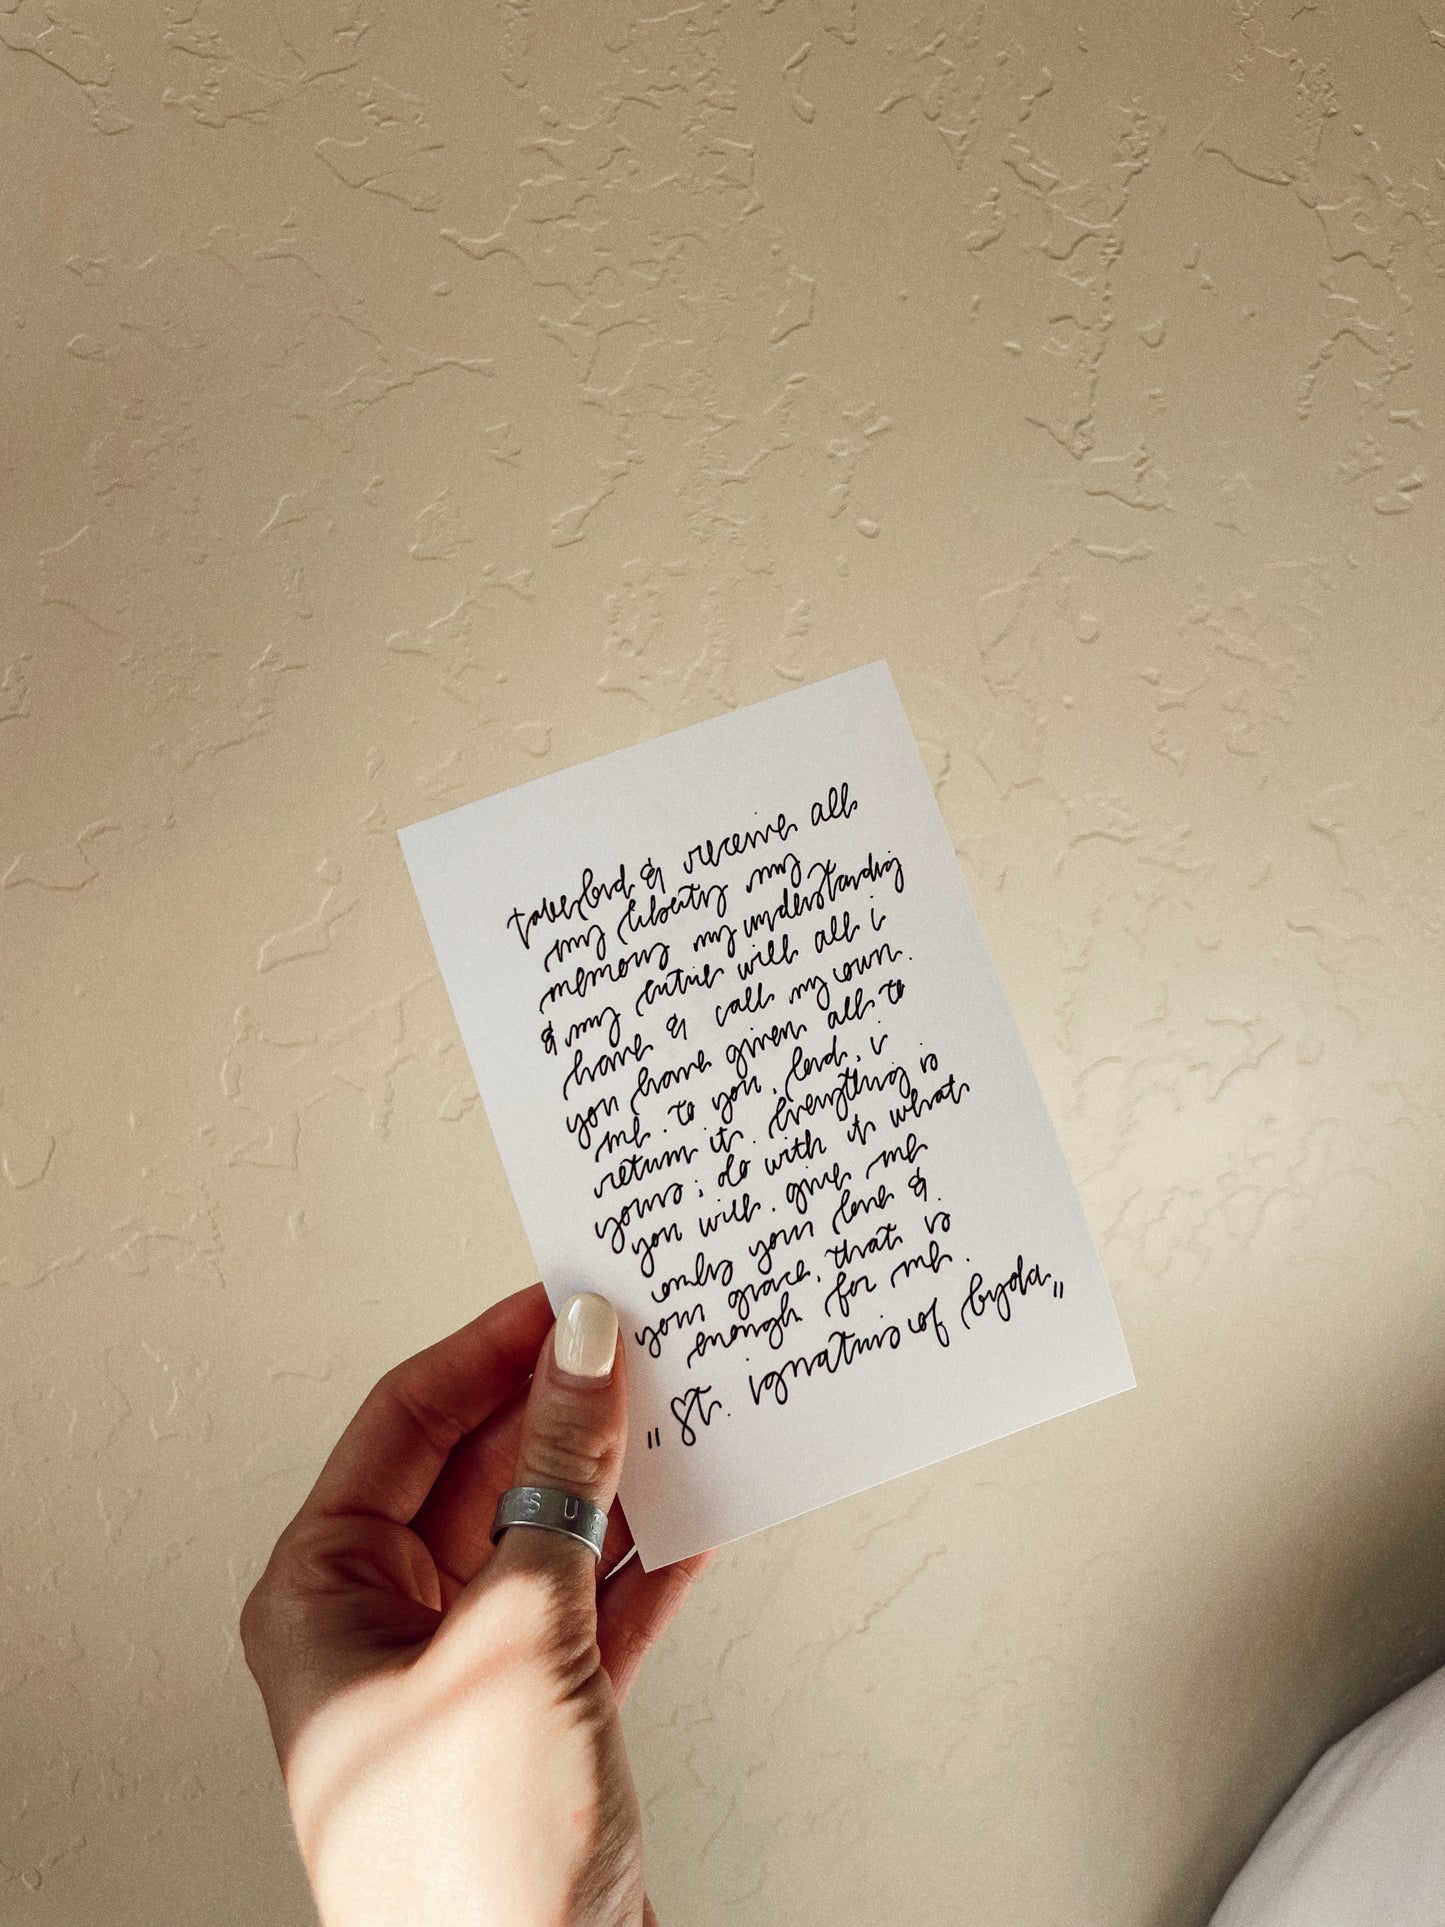 take, lord & receive all
my liberty my
memory my understanding
& my entire will all i
have & call my own.
you have given all to
me. to you, lord, i
return it. everything is
yours; do with it what
you will. give me
only your love &
your grace, that is
enough for me.
"St. ignatius of loyola"
SU